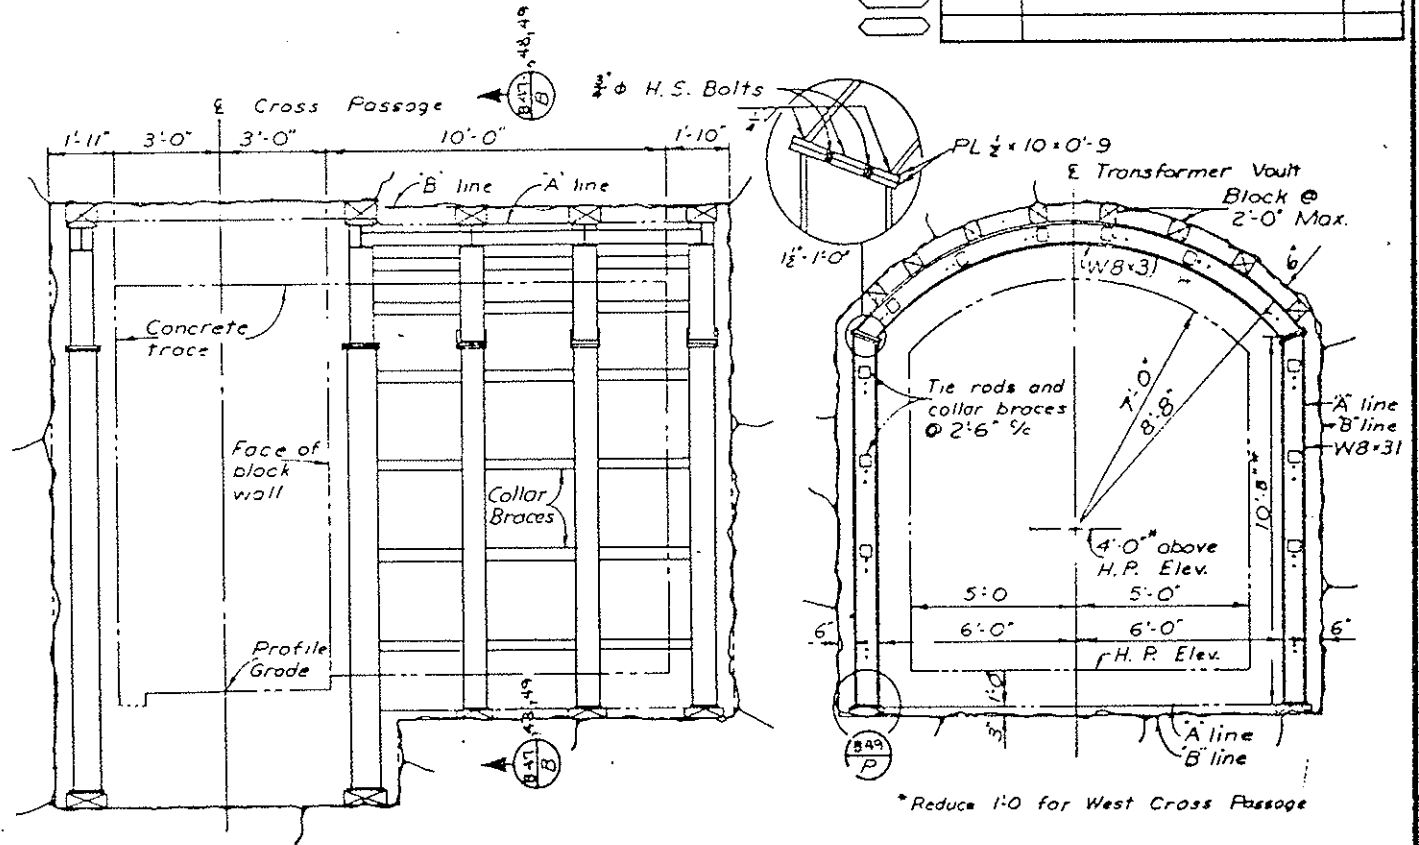 ℄ Cross Passage
1'-11"
3'-0"
3'-0"
10'-0"
1'-10"
B47, 48, 49
B
"B" line
"A" line
Concrete
trace
Face of
block
wall
Collar
Braces
Profile
Grade
B47, 48, 49
B
3/4" φ H.S. Bolts
1/4
PL 1/2 × 10 × 0'-9
1½"=1'-0"
℄ Transformer Vault
Block @
2'-0" Max.
6"
(W8×31)
Tie rods and
collar braces
@ 2'-6" c/c
8'-8"
"A" line
"B" line
W8×31
10'-8"*
4'-0"* above
H.P. Elev.
5'-0
5'-0"
6"
6'-0"
6'-0"
6"
H.P. Elev.
1'-0"
3"
"A" line
"B" line
B49
P
*Reduce 1'-0 for West Cross Passage